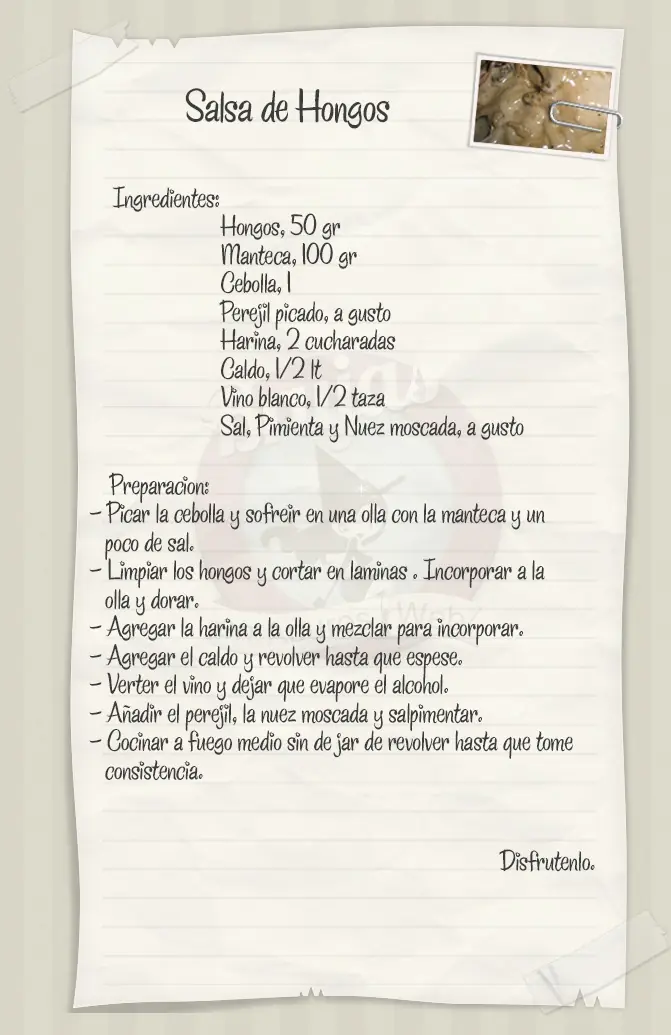 Salsa de Hongos
Ingredientes:
Hongos, 50 gr
Manteca, 100 gr
Cebolla, 1
Perejil picado, a gusto
Harina, 2 cucharadas
Caldo, 1/2 lt
Vino blanco, 1/2 taza
Sal, Pimienta y Nuez moscada, a gusto
Preparacion:
- Picar la cebolla y sofreir en una olla con la manteca y un
poco de sal.
- Limpiar los hongos y cortar en laminas . Incorporar a la
olla y dorar.
- Agregar la harina a la olla y mezclar para incorporar.
- Agregar el caldo y revolver hasta que espese.
- Verter el vino y dejar que evapore el alcohol.
- Añadir el perejil, la nuez moscada y salpimentar.
- Cocinar a fuego medio sin de jar de revolver hasta que tome
consistencia.
Disfrutenlo.